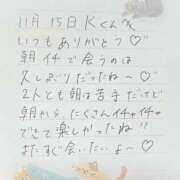 11月15日Kくんへ
いつもありがとう♡
朝イチで会うのは
久しぶりだったね〜♡
2人とも朝は苦手だけど
朝から、たくさんイチャイチャ
できて楽しかったね!!
またすぐ会いたいよ〜♡